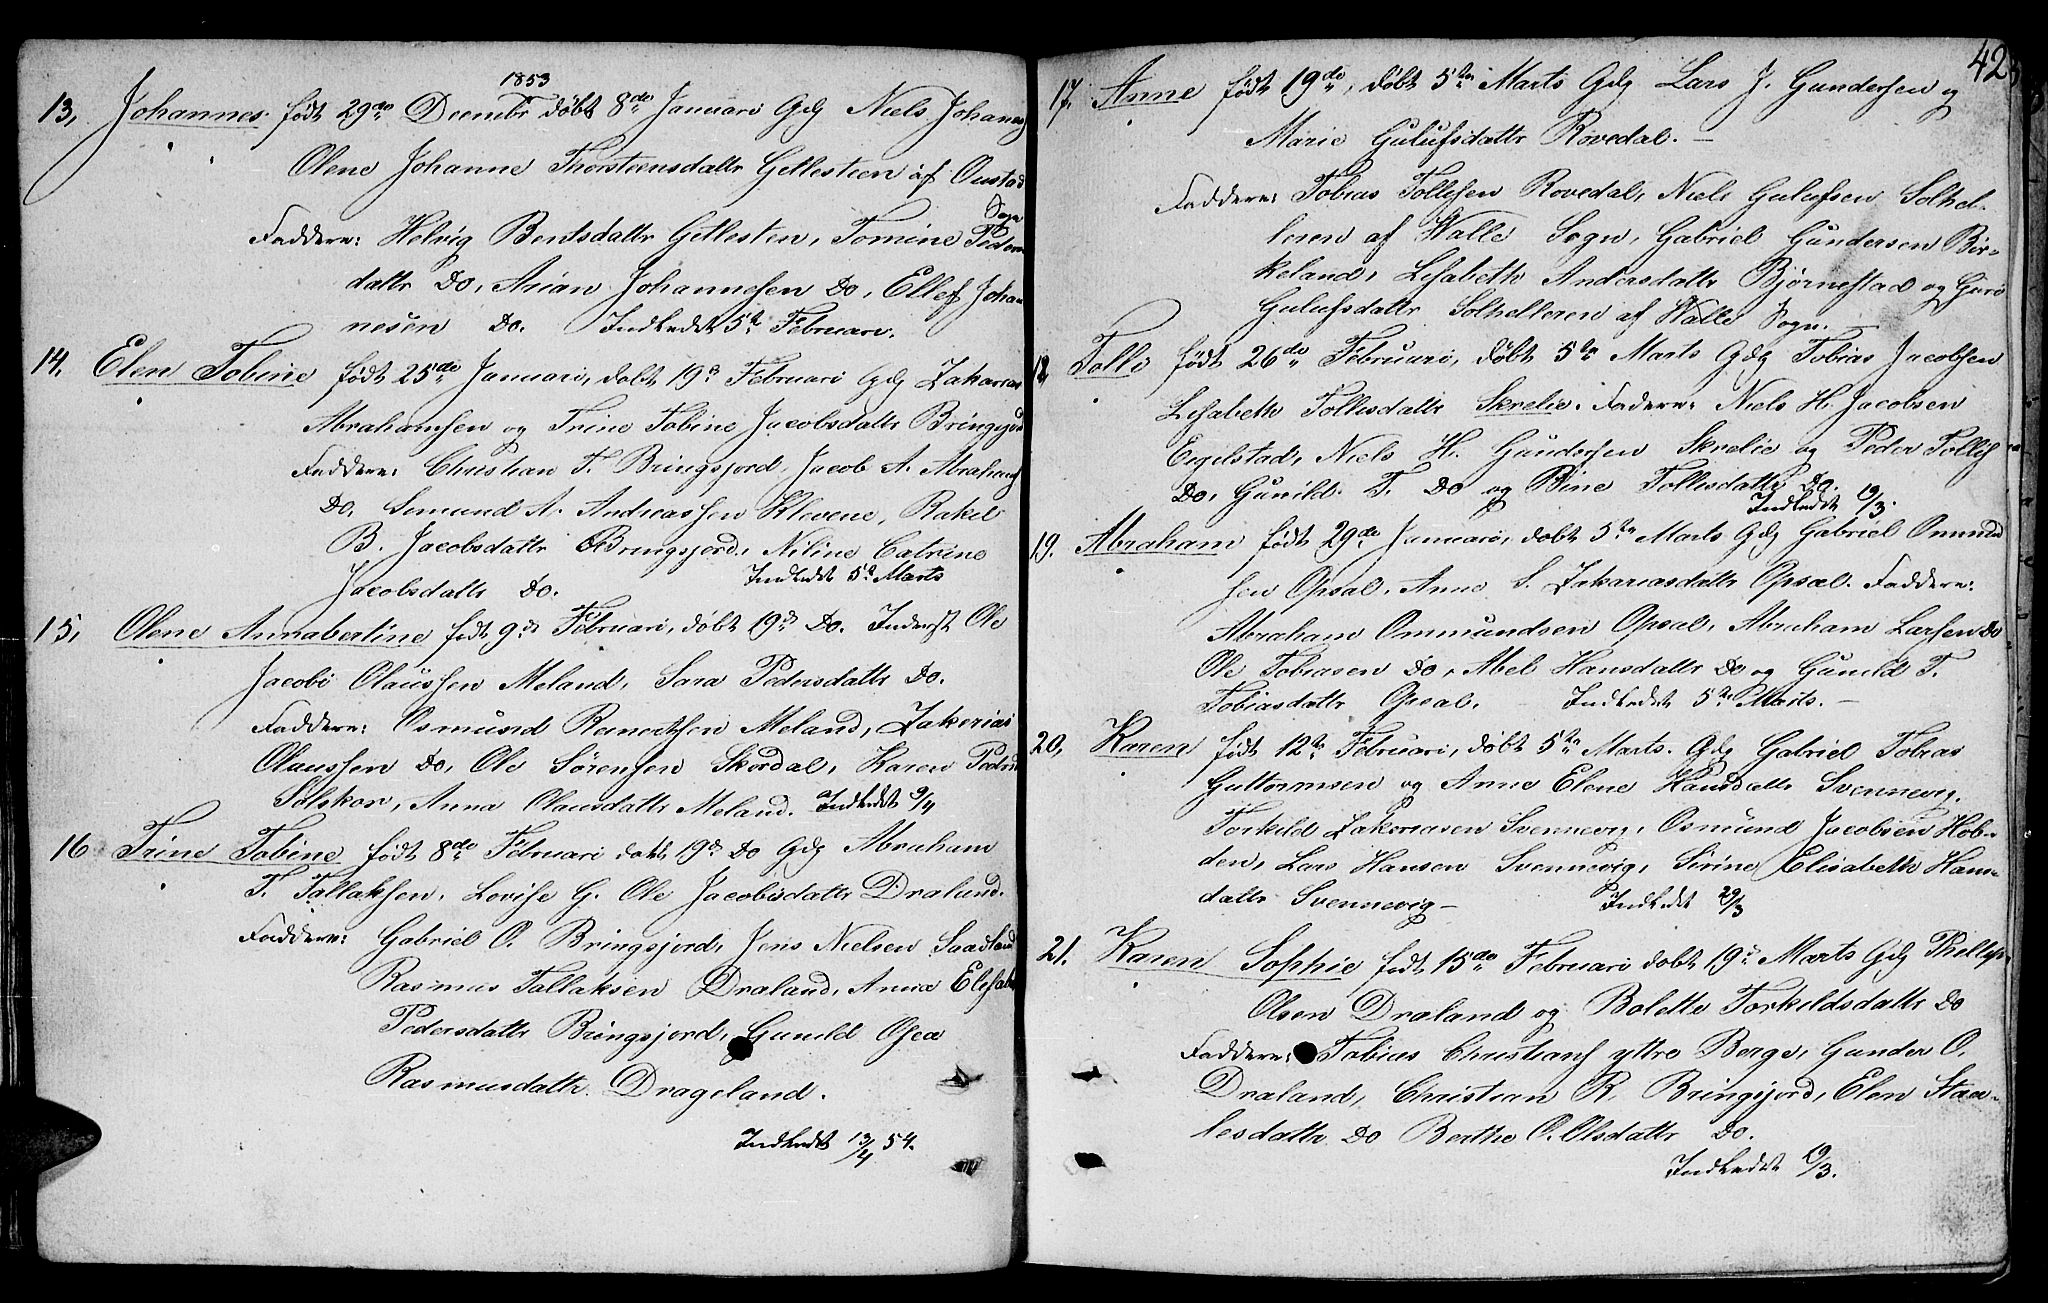 1853
13, Johannes født 29de Decembr døbt 8de Januari Gdg Niels Johanes
Olene Johanne Thorsteensdattr Gellesteen af Oustad
Sogn
Faddere: Helvig Bentsdattr Gellesten, Tomine Peders
dattr Do, Arian Johannesen Do, Ellef Johan
nesen Do. Indledet 5te Februari.
14, Elen Tobine født 25de Januari, døbt 19de Februari Gdg Zakarias
Abrahamsen og Trine Tobine Jacobsdattr Bringsjord
Faddere: Christian T. Bringsjord, Jacob A. Abrahams
Do, Semund A. Andreassen Klevene, Rakel
B. Jacobsdattr Bringsjord, Niline Catrine
Jacobsdattr Do. Indledet 5te Marts
15, Olene Annabertine født 9de Februari, døbt 19de Do. Inderst Ole
Jacobi Olaussen Meland, Sara Pedersdattr Do.
Faddere: Osmund Reinertsen Meland, Zakerias
Olaussen Do, Ole Sørensen Skordal, Karen Pedrs
Salskor, Anna Olausdattr Meland. Indledt 9/4
16 Trine Tobine født 8de Februari døbt 19de Do Gdg Abraham
T. Tallaksen, Lovise G. Ole Jacobisdattr Draland.
Faddere: Gabriel O. Bringsjord, Jens Nielsen Saadland
Rasmus Tallaksen Draland, Anna Elisabe
Pedersdattr Bringsjord, Gunild Osea
Rasmusdattr Drageland.
Indledet 13/4 54.
42
17, Anne født 19de, døbt 5te Marts Gdg Lars J. Gundersen og
Marie Gulufsdattr Rövedal. –
Faddere: Tobias Tollesen Rovedal, Niels Gulufsen Solhel-
leren af Walle Sogn, Gabriel Gundersen Bir-
keland, Lisabeth Andersdattr Bjørnestad og Guro
Gulufsdattr Solhelleren af Walle Sogn. –
18 Tolle født 26de Februari, døbt 5te Marts Gdg Tobias Jacobsen
Lisabeth Tollisdattr Skrelie. Fadere: Niels H. Jacobsen
Eigelstad, Niels H. Gundersen Skrelie og Peder Tollis
Do, Gunild T. Do og Bine Tollisdattr Do.
Indledet 19/3.
19. Abraham født 29de Januari, døbt 5te Marts Gdg Gabriel Ommund
sen Opsal, Anne S. Zakariasdattr Opsal. Faddere:
Abraham Ommundsen Opsal, Abraham Larsen Do
Ole Tobiasen Do, Abel Hansdattr Do og Gunild T.
Tobiasdattr Opsal. Indledet 5te Marts. –
20, Karen født 12te Februari, døbt 5te Marts. Gdg Gabriel Tobias
Guttormsen og Anne Elene Hansdattr Svennevig.
Torkild Zakariasen Svennevig, Osmund Jacobsen Hob-
den, Lars Hansen Svennevig, Sirine Elisabeth Hans-
dattr Svennevig – Indledet 29/3
21. Karen Sophie født 15de Februari døbt 19de Marts Gdg
Olsen Draland og Bolette Torkildsdattr Do
Faddere: Tobias Christians yttre Berge, Gunder O.
Draland, Christian R. Bringsjord, Elen Staa-
lesdattr Do Berthe O. Olsdattr Do.
Indledet 19/3.